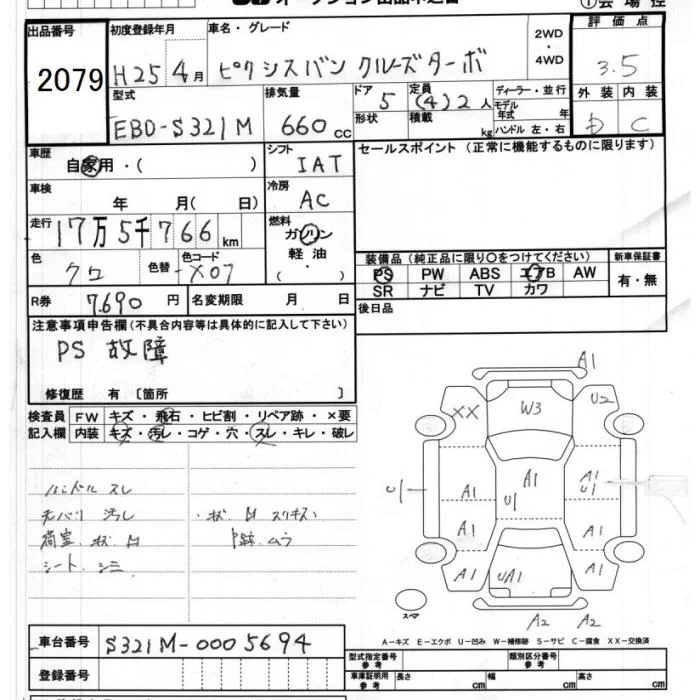 出品番号
2079
初度登録年月
H25 4月
車名・グレード
ピクシスバン クルーズターボ
2WD
・
4WD
評価点
3.5
型式
EBD-S321M
排気量
660 cc
ドア
5
形状
定員
(4)2人
積載
kg
ディーラー・並行
モデル年式 年
ハンドル 左・右
外装 内装
D C
車歴
自家用・( )
シフト
IAT
セールスポイント (正常に機能するものに限ります)
車検
年 月( 日)
冷房
AC
走行
17万5千766 km
燃料
ガソリン
軽油
・( )
色
クロ
色替
色コード
X07
装備品 (純正品に限り○をつけてください)
PS PW ABS エアB AW
SR ナビ TV カワ
新車保証書
有・無
R券
7,690 円
名変期限 月 日
後日品
注意事項申告欄(不具合内容等は具体的に記入して下さい)
PS 故障
修復歴 有 〔箇所 〕
検査員
記入欄
FW キズ・飛石・ヒビ割・リペア跡・×要
内装 キズ・汚レ・コゲ・穴・スレ・キレ・破レ
ハンドル スレ
天バリ 汚レ
荷室 状 凹
シート シミ
A1
XX
W3
U2
U1
A1
A1
U1
A1
U1
A1
A1
A1
UA1
A1
スペア
A2 A2
A-キズ E-エクボ U-凹み W-補修跡 S-サビ C-腐食 XX-交換済
車台番号
S321M-0005694
登録番号
型式指定番号
参考
類別区分番号
参考
車庫証明用
参考
長さ cm
幅 cm
高さ cm